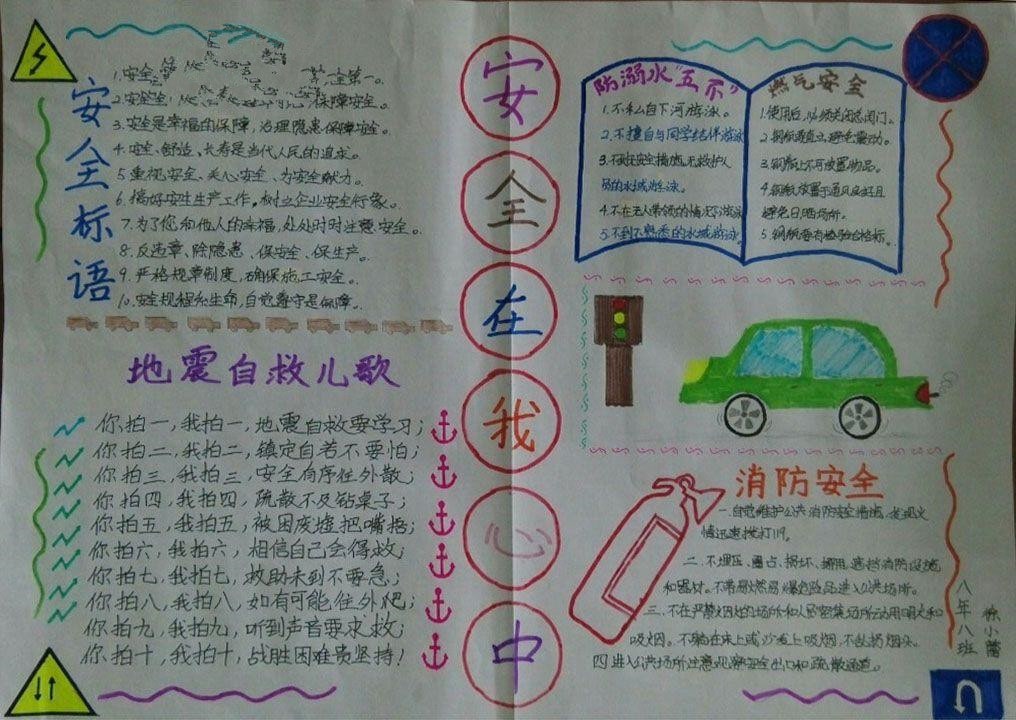 安全标语
1.安全
第一。
2.安全
保障安全。
3.安全是幸福的保障，治理隐患保障安全。
4.安全、舒适、长寿是当代人民的追求。
5.重视安全、关心安全、为安全献力。
6.搞好安生生产工作，树立企业安全行象。
7.为了您和他人的幸福，处处时时注意安全。
8.反违章、除隐患、保安全、保生产。
9.严格规章制度，确保施工安全。
10.安全规程系生命，自觉遵守是保障。
地震自救儿歌
你拍一，我拍一，地震自救要学习；
你拍二，我拍二，镇定自若不要怕；
你拍三，我拍三，安全有序往外散；
你拍四，我拍四，疏散不及钻桌子；
你拍五，我拍五，被困废墟把嘴捂；
你拍六，我拍六，相信自己会得救；
你拍七，我拍七，救助未到不要急；
你拍八，我拍八，如有可能往外爬；
你拍九，我拍九，听到声音要求救；
你拍十，我拍十，战胜困难贵坚持！
安全在我心中
防溺水“五不”
1.不私自下河游泳。
2.不擅自与同学结伴游泳
3.不到无安全措施,无救护人
员的水域游泳。
4.不在无人带领的情况下游泳
5.不到不熟悉的水域游泳
燃气安全
1.使用后，必须关闭总阀门。
2.钢瓶须直立,避免震动。
3.钢瓶上不可放置物品。
4.钢瓶放置于通风良好且
避免日晒场所。
5.钢瓶要有检验合格标。
消防安全
一.自觉维护公共消防安全措施,发现火
情迅速拨打119。
二.不埋压、圈占、损坏、挪用、遮挡消防设施
和器材。不带易燃易爆危险品进入公共场所。
三.不在严禁烟火的场所和人员密集场所动用明火和
吸烟。不躺在床上或沙发上吸烟,不乱扔烟头
四.进入公共场所注意观察安全出口和疏散通道。
八年八班
徐小蕾